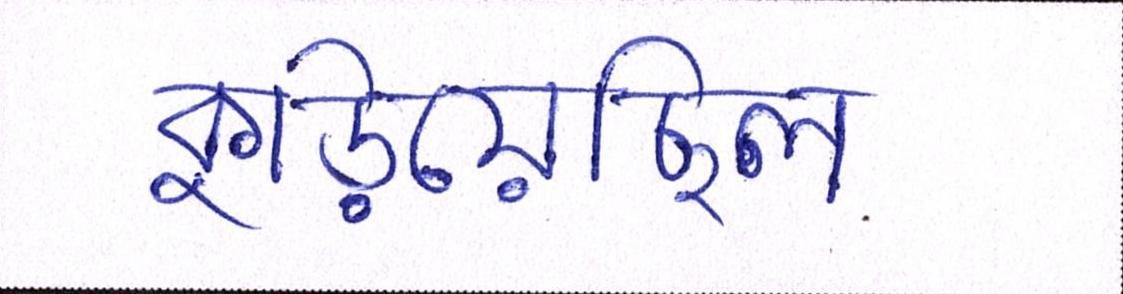 কুড়িয়েছিল